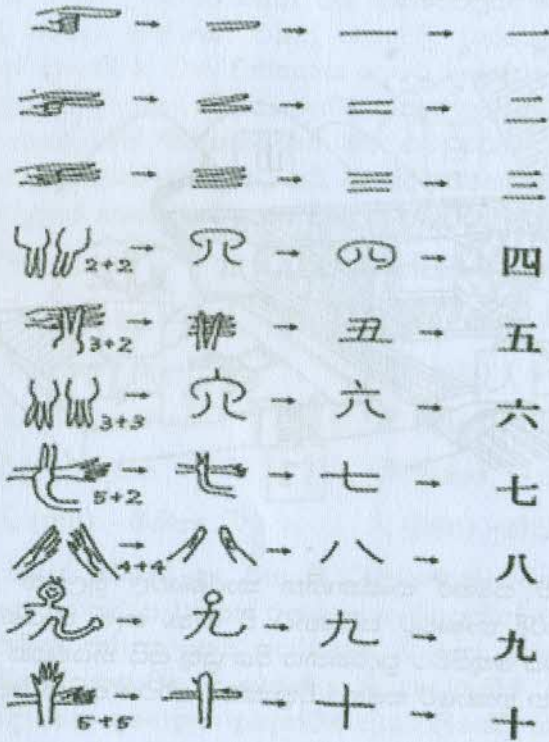 一
二
三
2+2 四
3+2 丑 五
3+3 六 六
5+2 七 七
4+4 八 八
九 九
5+5 十 十